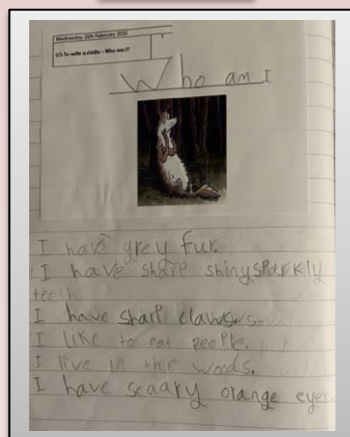 Wednesday 26th February 2020
LO: To write a riddle – Who am I?
Who am I
I have grey fur.
I have share shinysparkly
teeth
I have sharp claws.
I like to eat people.
I live in the woods.
I have scaary orange eyes